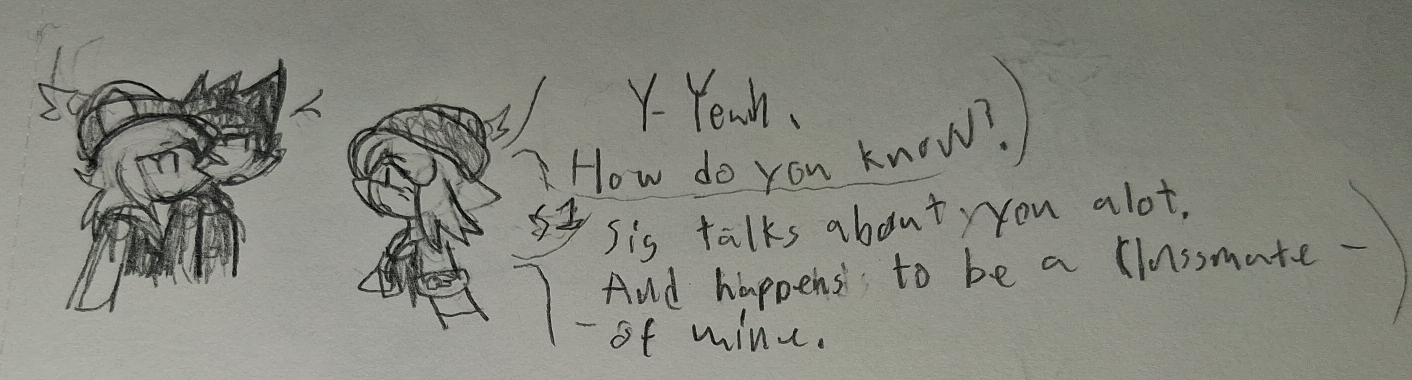 Y-Yeah.
How do you know?
Sig talks about you alot.
And happens to be a classmate -
- of mine.